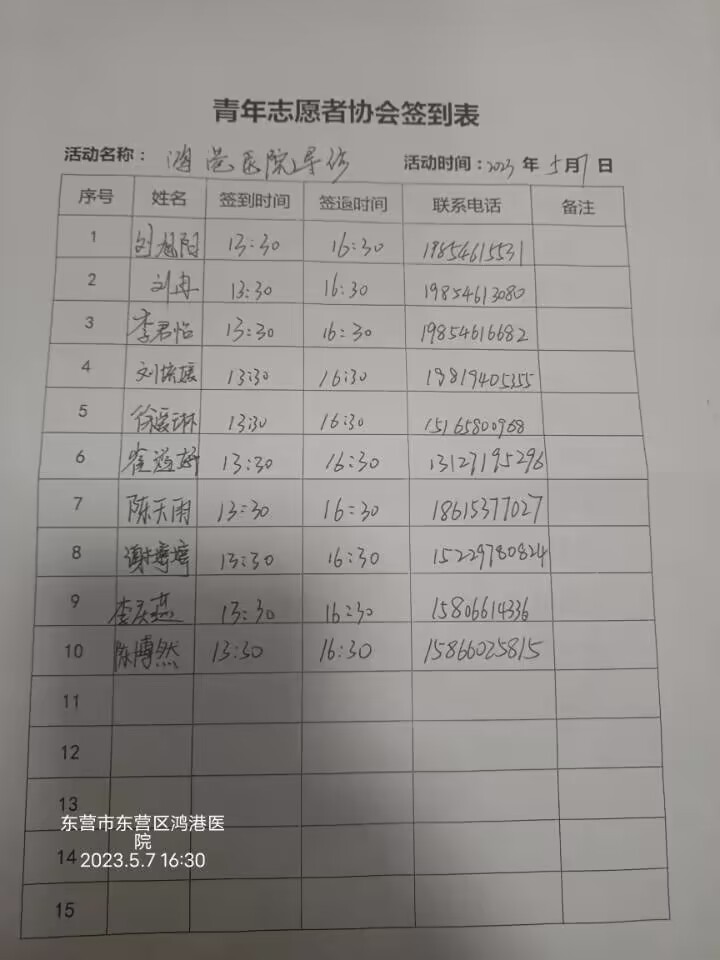 青年志愿者协会签到表
活动名称： 鸿港医院导诊 活动时间：2023 年 5月7日
序号 姓名 签到时间 签退时间 联系电话 备注
1 刘旭阳 13:30 16:30 19854615531
2 刘冉 13:30 16:30 19854613080
3 李君怡 13:30 16:30 19854616682
4 13:30 16:30 19819405355
5 13:30 16:30 15165800968
6 13:30 16:30 13127195296
7 陈天雨 13:30 16:30 18615377027
8 13:30 16:30 15229780824
9 李庆燕 13:30 16:30 15806614336
10 陈博然 13:30 16:30 15866025815
11
12
13
14
15
东营市东营区鸿港医
院
2023.5.7 16:30